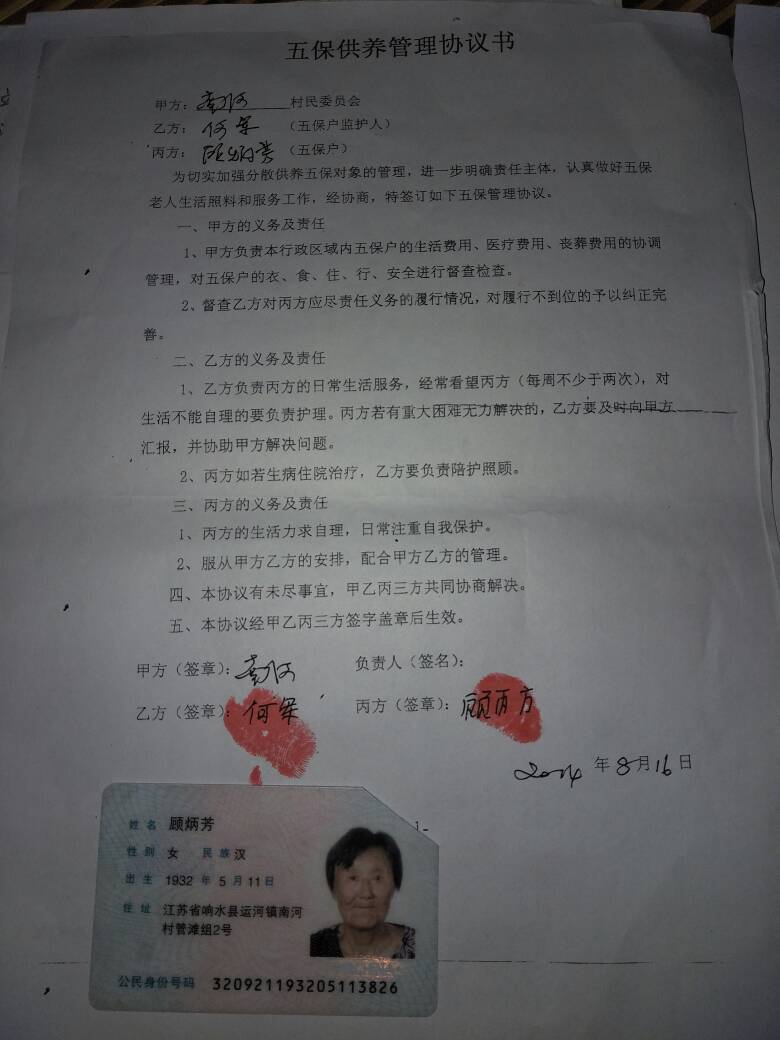 五保供养管理协议书
甲方：南河 村民委员会
乙方：何军 （五保户监护人）
丙方：顾炳芳 （五保户）
为切实加强分散供养五保对象的管理，进一步明确责任主体，认真做好五保
老人生活照料和服务工作，经协商，特签订如下五保管理协议。
一、甲方的义务及责任
1、甲方负责本行政区域内五保户的生活费用、医疗费用、丧葬费用的协调
管理，对五保户的衣、食、住、行、安全进行督查检查。
2、督查乙方对丙方应尽责任义务的履行情况，对履行不到位的予以纠正完
善。
二、乙方的义务及责任
1、乙方负责丙方的日常生活服务，经常看望丙方（每周不少于两次），对
生活不能自理的要负责护理。丙方若有重大困难无力解决的，乙方要及时向甲方
汇报，并协助甲方解决问题。
2、丙方如若生病住院治疗，乙方要负责陪护照顾。
三、丙方的义务及责任
1、丙方的生活力求自理，日常注重自我保护。
2、服从甲方乙方的安排，配合甲方乙方的管理。
四、本协议有未尽事宜，甲乙丙三方共同协商解决。
五、本协议经甲乙丙三方签字盖章后生效。
甲方（签章）：南河 负责人（签名）：
乙方（签章）：何军 丙方（签章）：顾丙方
2014 年 8 月 16 日
1-
姓名 顾炳芳
性别 女 民族 汉
出生 1932 年 5 月 11 日
住址 江苏省响水县运河镇南河
村管滩组2号
公民身份号码 320921193205113826